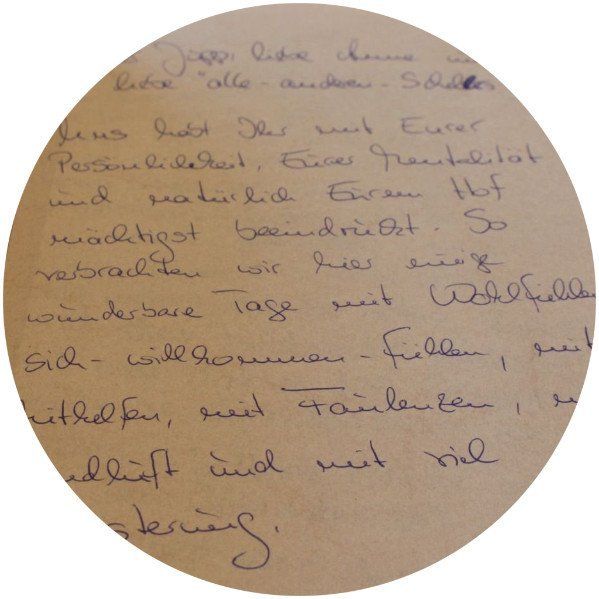 Jüppi, liebe
liebe "alle-anderen-
Uns habt Ihr mit Eurer
Persönlichkeit, Eurer Mentalität
und natürlich Eurem Hof
mächtigst beeindruckt. So
verbrachten wir hier einige
wunderbare Tage mit Wohlfühlen
sich-willkommen-fühlen, mit
ithelfen, mit Faulenzen,
ndluft und mit viel
sterung.